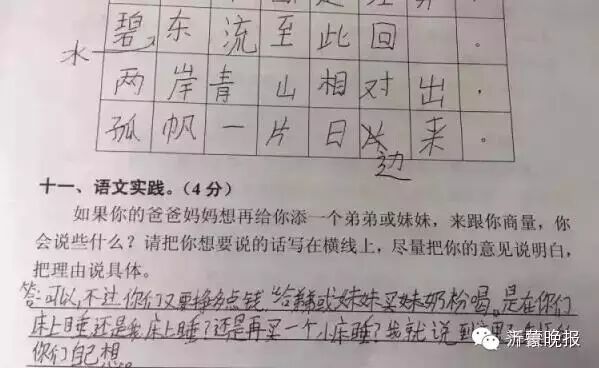 碧东流至此回。
水
两岸青山相对出，
孤帆一片日边来。
十一、语文实践。(4分)
如果你的爸爸妈妈想再给你添一个弟弟或妹妹，来跟你商量，你
会说些什么？请把你想要说的话写在横线上，尽量把你的意见说明白，
把理由说具体。
答:可以,不过你们又要挣多点钱,给弟弟或妹妹买奶粉喝。是在你们
床上睡还是我床上睡?还是再买一个小床睡?我就说到这里
你们自己想
沂蒙晚报